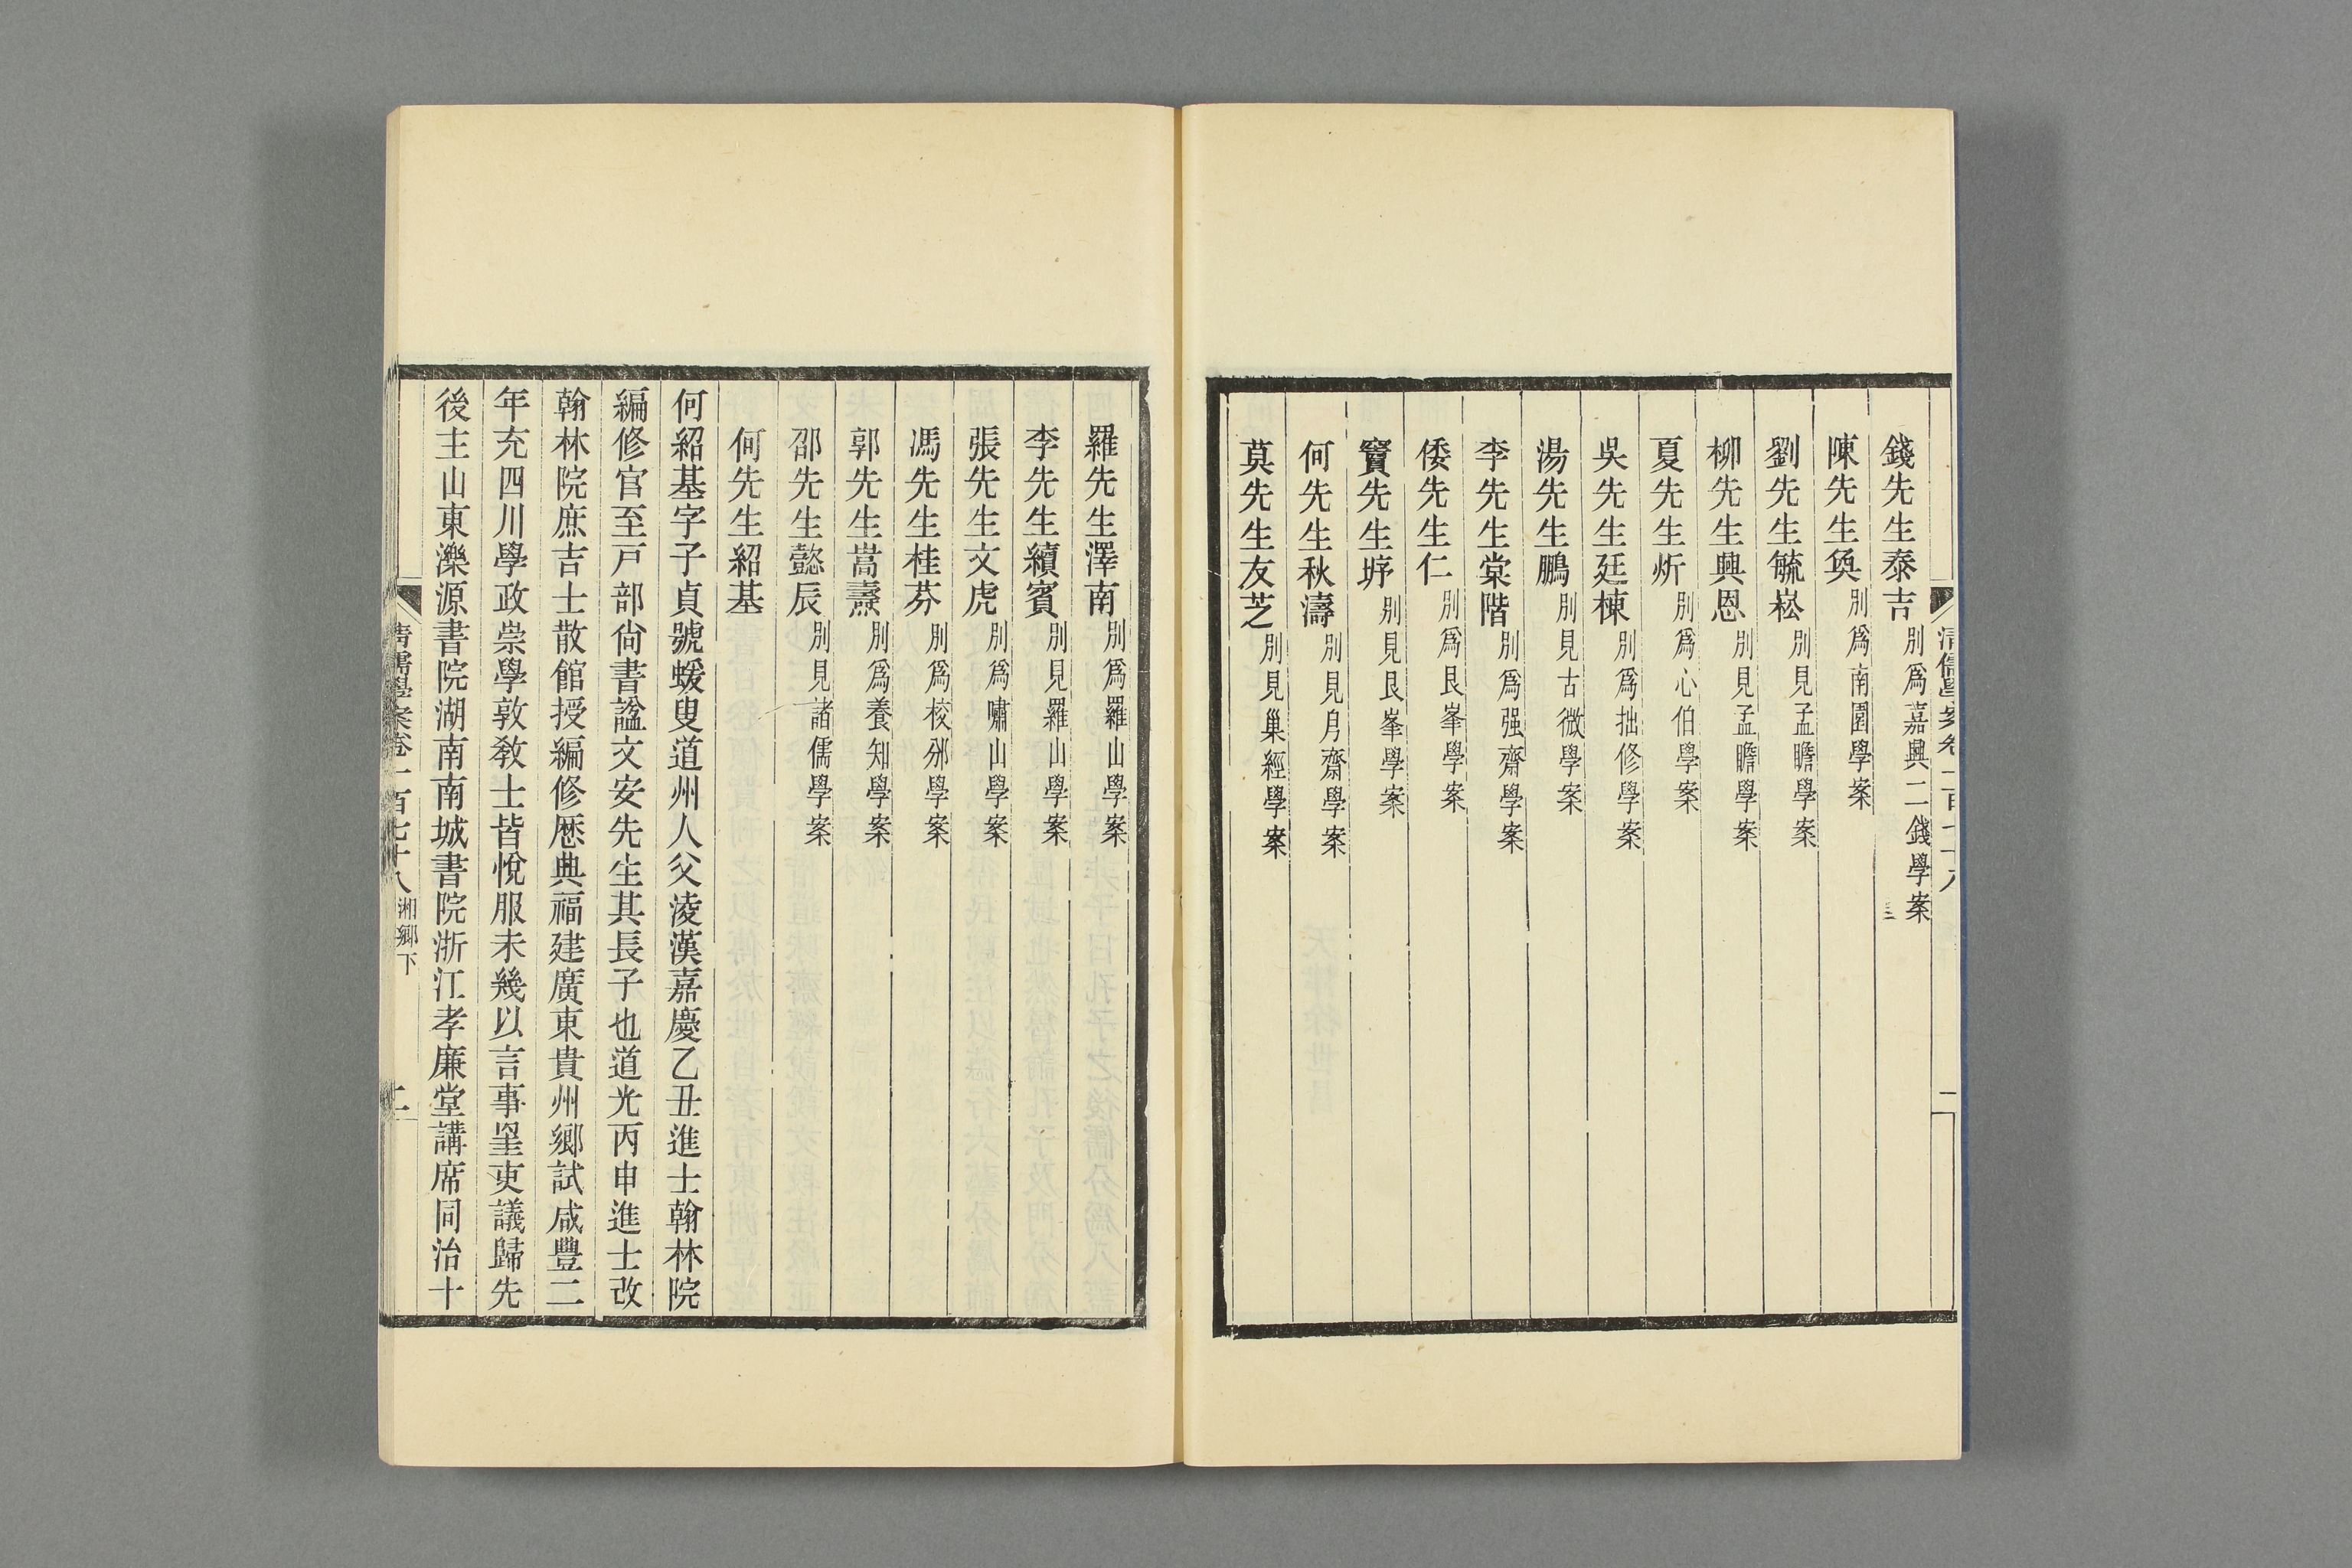 錢先生泰吉 別爲嘉興二錢學案
陳先生奐 別爲南園學案
劉先生毓崧 別見孟瞻學案
柳先生興恩 別見孟瞻學案
夏先生炘 別爲心伯學案
吳先生廷棟 別爲拙修學案
湯先生鵬 別見古微學案
李先生棠階 別爲强齋學案
倭先生仁 別爲艮峯學案
竇先生垿 別見艮峯學案
何先生秋濤 別見㐆齋學案
莫先生友芝 別見巢經學案
羅先生澤南 別爲羅山學案
李先生續賓 別見羅山學案
張先生文虎 別爲嘯山學案
馮先生桂芬 別爲校邠學案
郭先生嵩燾 別爲養知學案
邵先生懿辰 別見諸儒學案
何先生紹基
何紹基字子貞號蝯叟道州人父淩漢嘉慶乙丑進士翰林院
編修官至戸部尙書諡文安先生其長子也道光丙申進士改
翰林院庶吉士散館授編修歷典福建廣東貴州鄕試咸豐二
年充四川學政崇學敦敎士皆悅服未幾以言事罣吏議歸先
後主山東濼源書院湖南南城書院浙江孝廉堂講席同治十
淸儒學案卷一百七十八 湘鄕下 二